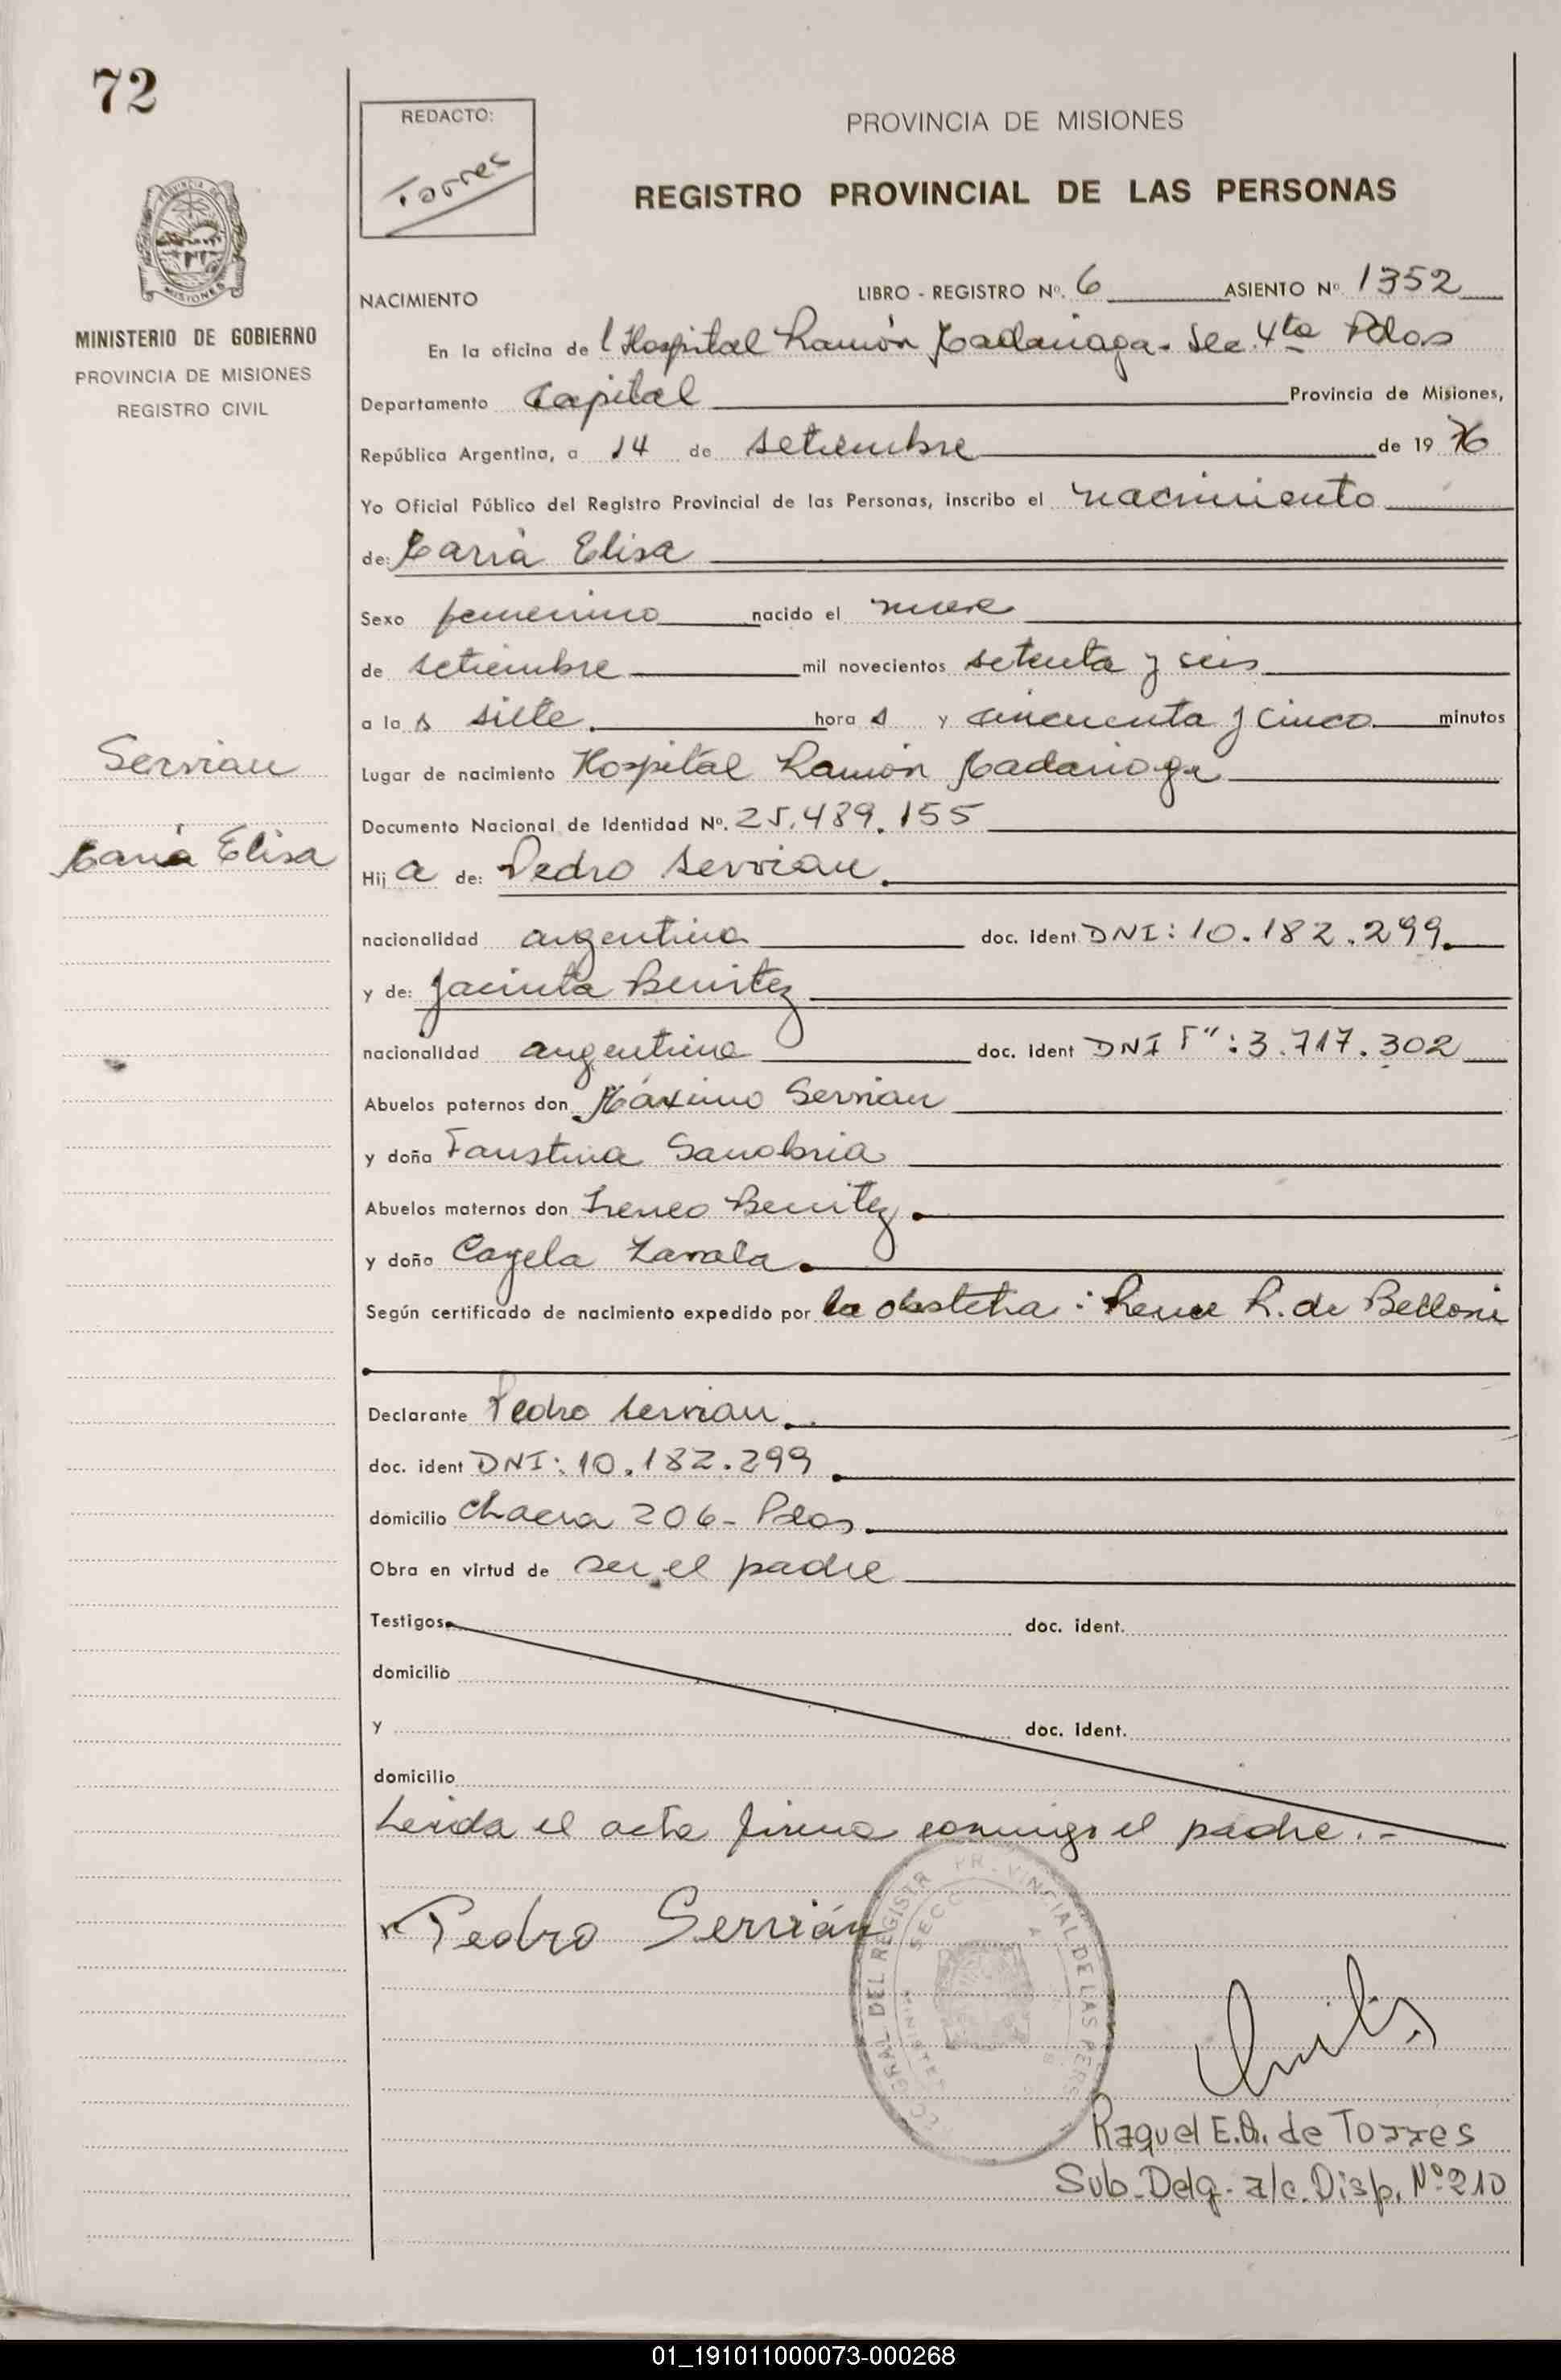 72
REDACTO:
Torres
PROVINCIA DE MISIONES
REGISTRO PROVINCIAL DE LAS PERSONAS
MISIONES
MINISTERIO DE GOBIERNO
PROVINCIA DE MISIONES
REGISTRO CIVIL
NACIMIENTO
LIBRO - REGISTRO Nº. 6 ASIENTO Nº 1352
En la oficina del Hospital Ramón Madariaga - Sec. 4ta Pdas
Departamento Capital Provincia de Misiones,
República Argentina, a 14 de setiembre de 19 76
Yo Oficial Público del Registro Provincial de las Personas, inscribo el nacimiento
de: María Elisa
Sexo femenino nacido el nueve
de setiembre mil novecientos setenta y seis
a la s siete hora s y cincuenta y cinco minutos
Lugar de nacimiento Hospital Ramón Madariaga
Documento Nacional de Identidad Nº. 25.489.155
Servian
María Elisa
Hij a de: Pedro Servian
nacionalidad argentina doc. ident DNI: 10.182.299
y de: Jacinta Benitez
nacionalidad argentina doc. ident DNI F": 3.717.302
Abuelos paternos don Máximo Servian
y doña Faustina Sanabria
Abuelos maternos don Ireneo Benitez
y doña Zavala
Según certificado de nacimiento expedido por la obstetra: Renee R. de Belloni
Declarante Pedro Servian
doc. ident DNI: 10.182.299
domicilio Chacra 206 - Pdas
Obra en virtud de ser el padre
Testigos doc. ident.
domicilio
y doc. ident.
domicilio
Leida el acta firma conmigo el padre.-
Pedro Servián
Raquel E. de Torres
Sub-Delg. a/c. Disp. Nº 210
01_191011000073-000268